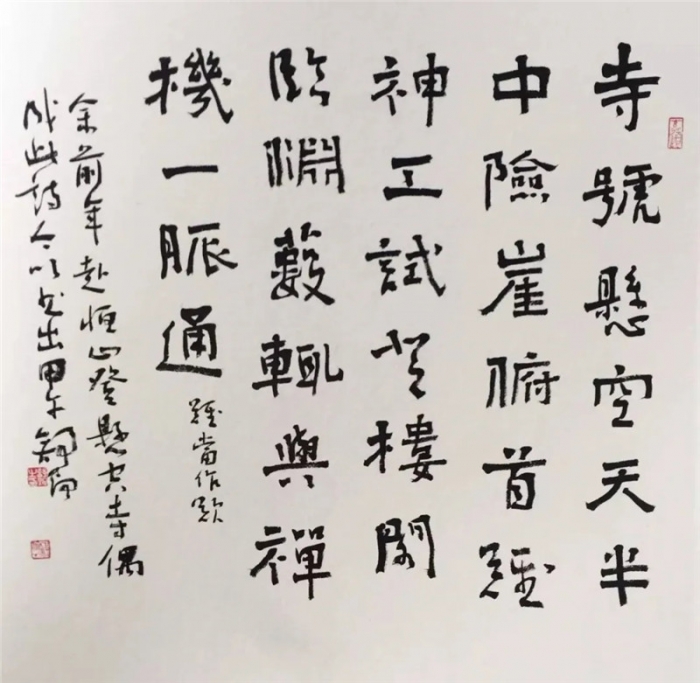 寺號懸空天半
中險崖俯首
神工試登樓閣
臨淵藪輒與禪
機一脈通
當作
余前年赴恒山登懸空寺偶
成此詩今以書出甲午